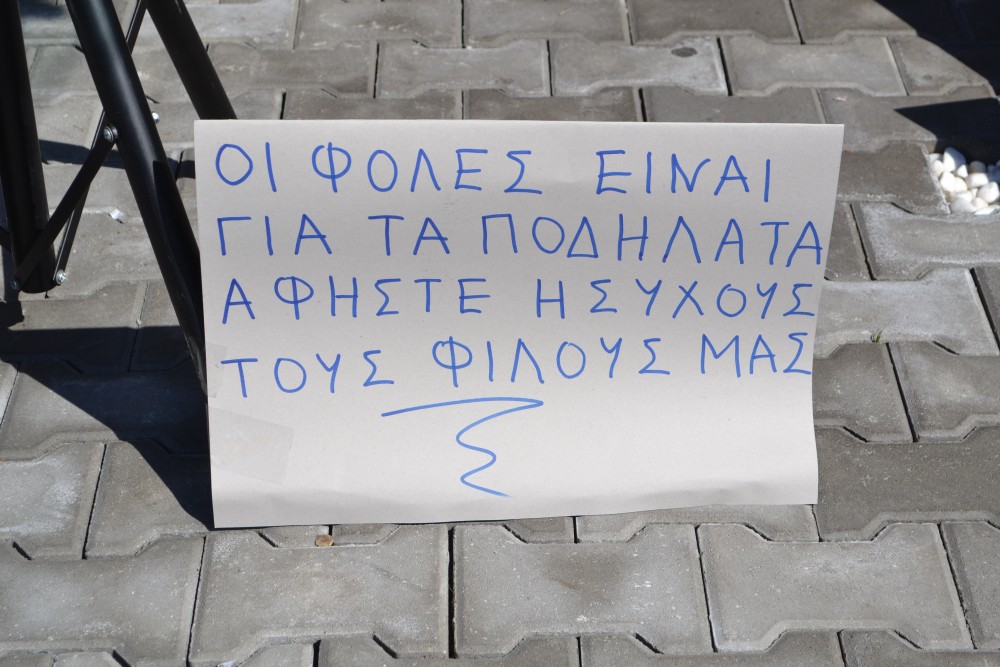 ΟΙ ΦΟΛΕΣ ΕΙΝΑΙ
ΓΙΑ ΤΑ ΠΟΔΗΛΑΤΑ
ΑΦΗΣΤΕ ΗΣΥΧΟΥΣ
ΤΟΥΣ ΦΙΛΟΥΣ ΜΑΣ